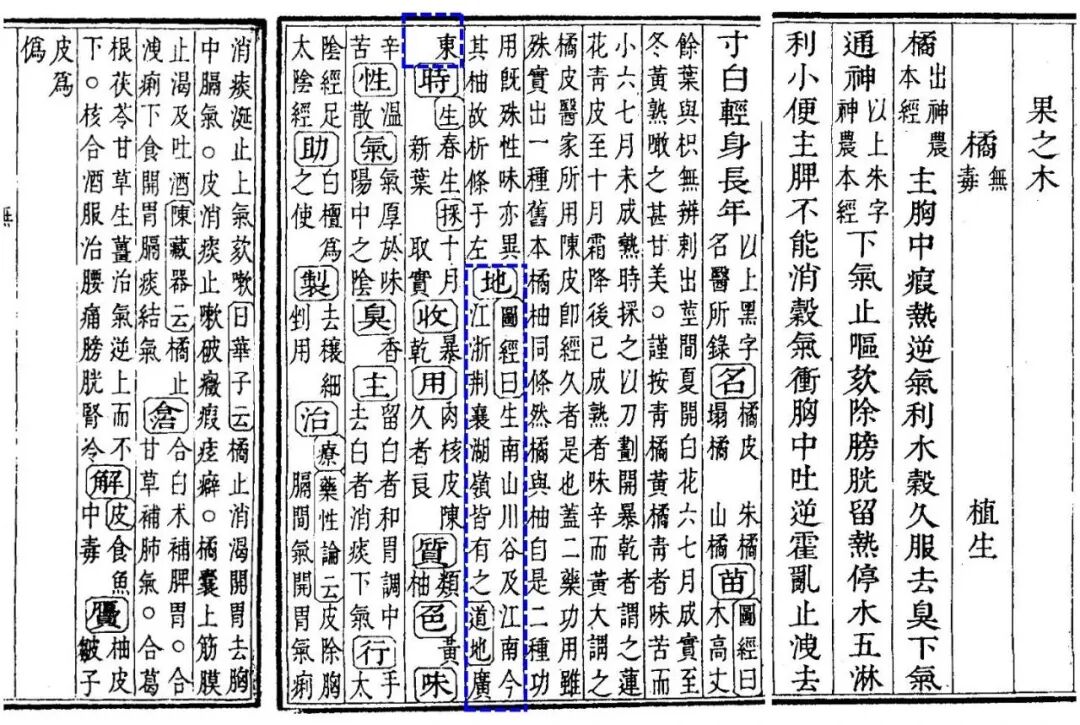 果之木
橘 無毒 植生
橘 出神農本經 主胸中瘕熱逆氣利水穀久服去臭下氣
通神 以上朱字神農本經 下氣止嘔欬除膀胱留熱停水五淋
利小便主脾不能消穀氣衝胸中吐逆霍亂止洩去
寸白輕身長年 以上黑字名醫所錄 名 橘皮 朱橘 塌橘 山橘 苗 圖經曰木高丈
餘葉與枳無辨刺出莖間夏開白花六七月成實至
冬黃熟噉之甚甘美○謹按青橘黃橘青者味苦而
小六七月未成熟時採之以刀劃開暴乾者謂之蓮
花青皮至十月霜降後已成熟者味辛而黃大謂之
橘皮醫家所用陳皮即經久者是也蓋二藥功用雖
殊實出一種舊本橘柚同條然橘與柚自是二種功
用既殊性味亦異其柚故析條于左 地 圖經曰生南山川谷及江南今江浙荆襄湖嶺皆有之道地廣
東 時 生春生新葉採十月取實 收 暴乾 用 肉核皮陳久者良 質 類柚 色 黃 味
辛 性 溫散 氣 氣厚於味陽中之陰 臭 香 主 留白者和胃調中去白者消痰下氣 行 手太
陰經足太陰經 助 白檀爲之使 製 去穰細剉用 治 療藥性論云皮除胸膈間氣開胃氣痢
消痰涎止上氣欬嗽日華子云橘止消渴開胃去胸
中膈氣○皮消痰止嗽破癥瘕痃癖○橘囊上筋膜
止渴及吐酒陳藏器云橘止洩痢下食開胃膈痰結氣 合 合白朮補脾胃○合甘草補肺氣○合葛
根茯苓甘草生薑治氣逆上而不下○核合酒服治腰痛膀胱腎冷 解 皮食魚中毒 贋 柚皮皺子
皮爲僞
無